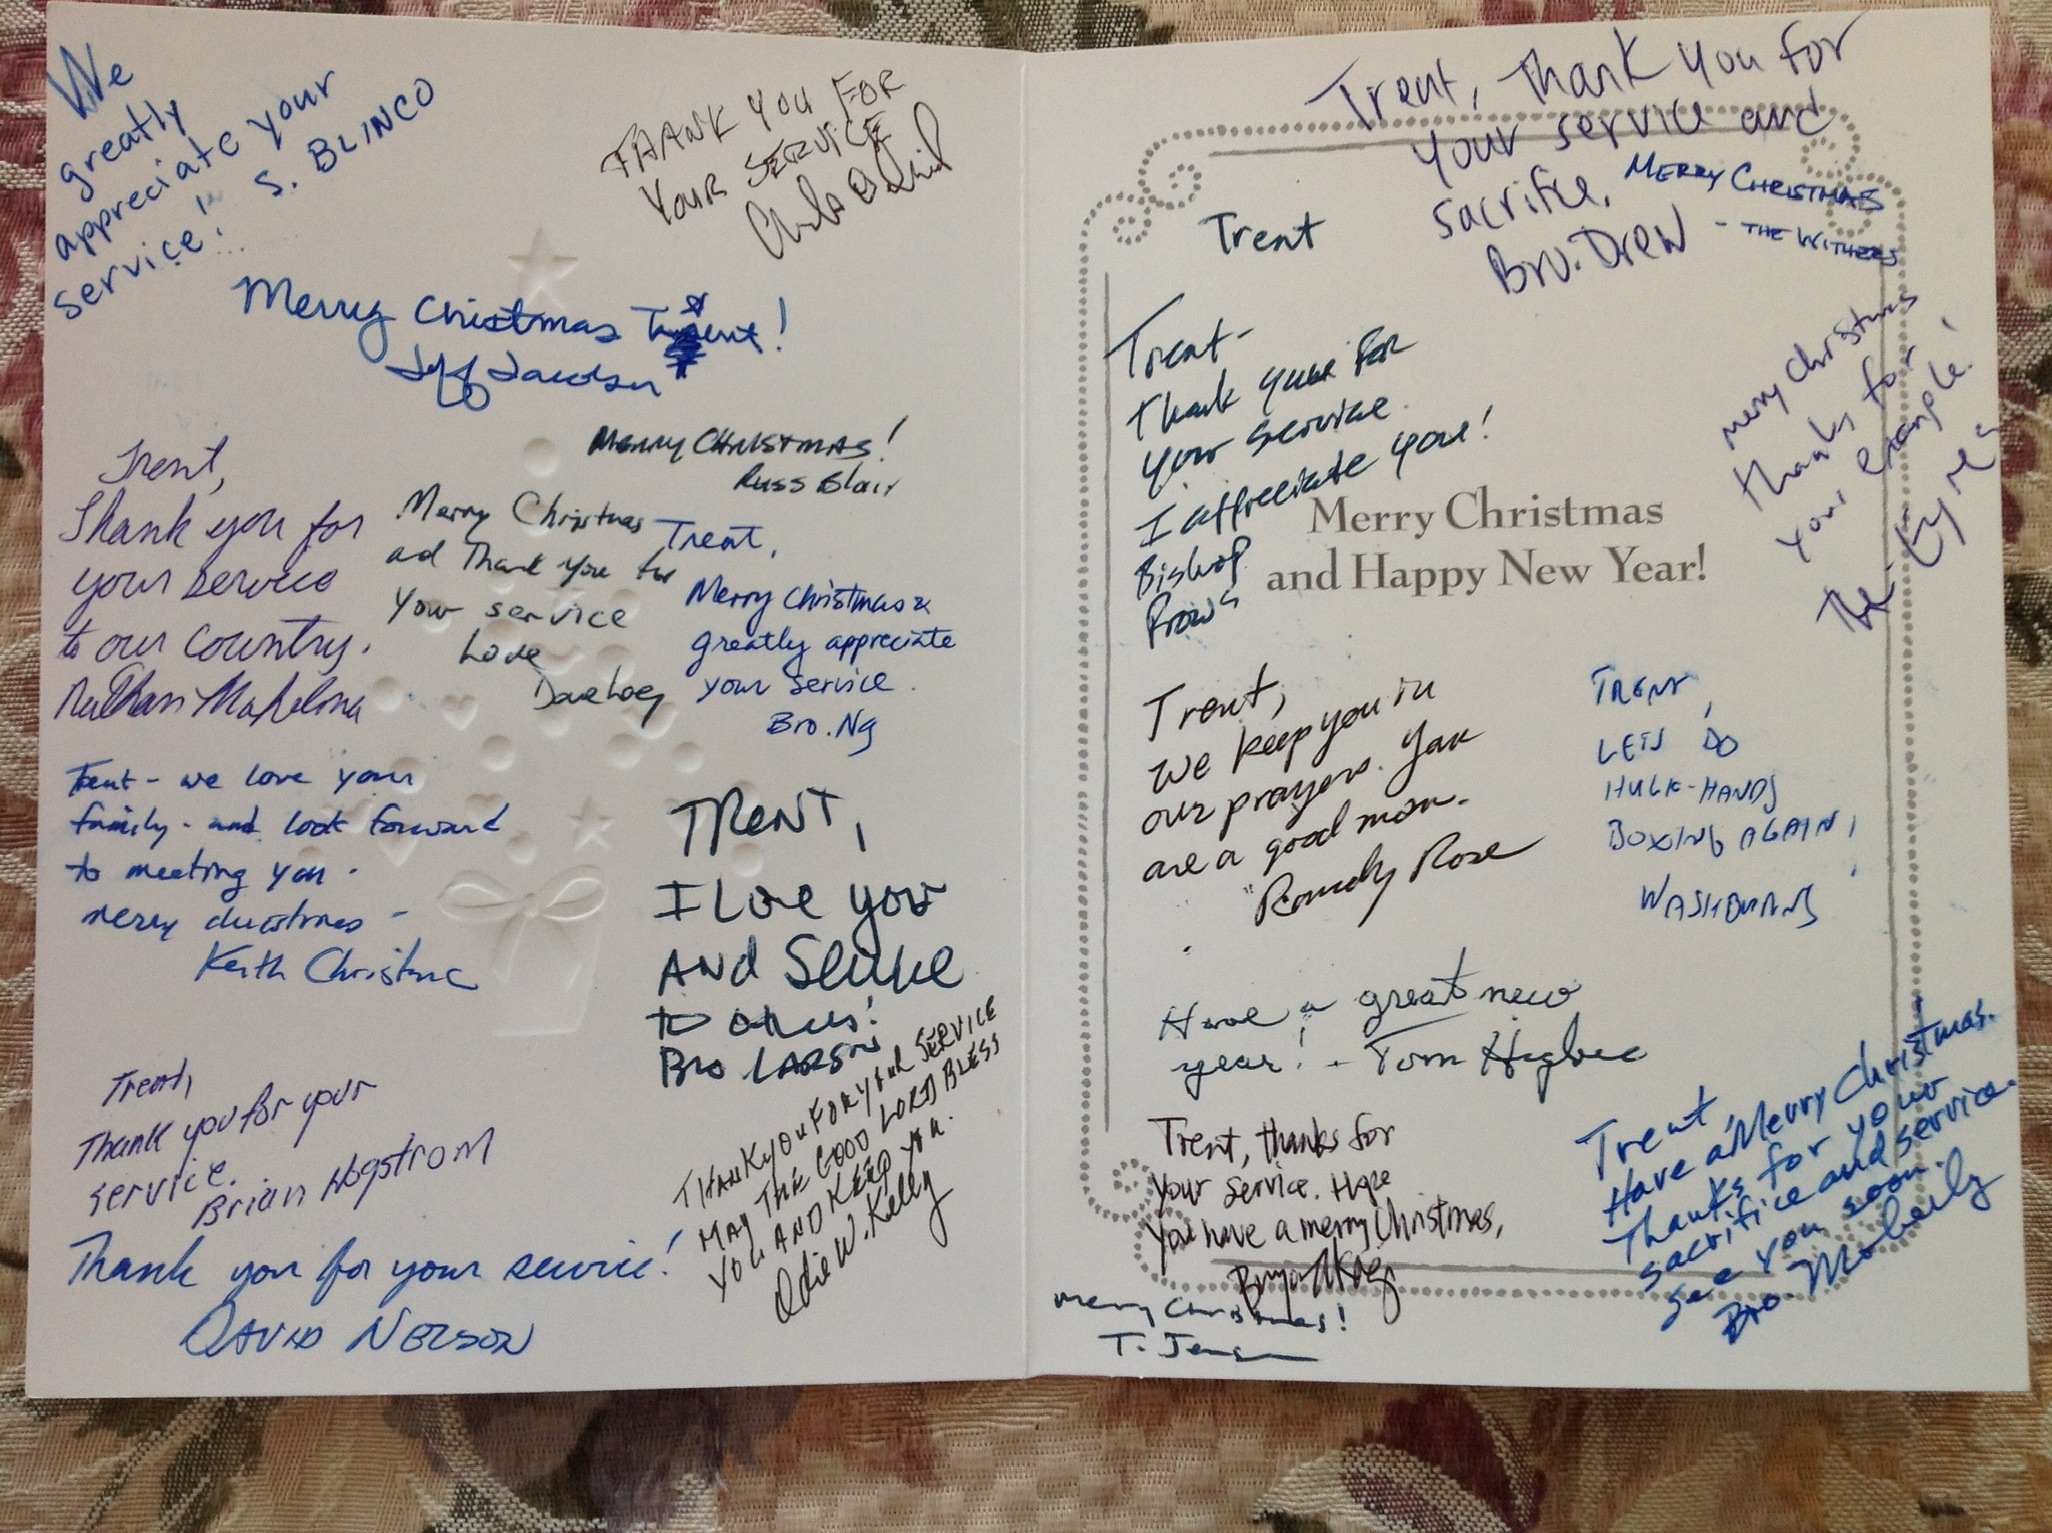 We
greatly
appreciate your
service!
S. BLINCO
THANK YOU FOR
YOUR SERVICE
Merry Christmas Trent!
Jeff Jacobson
Merry CHRISTMAS!
Russ Blair
Trent,
Thank you for
your service
to our country.
Nathan
Merry Christmas
ad Thank you for
Your service
Love
Dave
Trent,
Merry Christmas &
greatly appreciate
your service.
Bro. Ng
Trent - we love your
family - and look forward
to meeting you -
merry christmas -
Keith
TRENT,
I Love you
AND Service
to others!
Bro LARSON
Trent,
Thank you for your
service.
Brian Hogstrom
THANK YOU FOR YOUR SERVICE
MAY THE GOOD LORD BLESS
YOU AND KEEP YOU.
Odie W. Kelly
Thank you for your service!
DAVID NELSON
Trent, Thank you for
your service and
sacrifice.
Bro. Drew
MERRY CHRISTMAS
- THE WITHERS
Trent
Trent-
Thank you for
your service
I appreciate you!
Bishop
Prows
merry christmas
thanks for
your example!
The
Merry Christmas
and Happy New Year!
Trent,
we keep you in
our prayers. You
are a good man.
Romdy Rose
TRENT,
LETS DO
HULK-HANDS
BOXING AGAIN!
WASHBURNS
Have a great new
year! - Tom Higbee
Trent, thanks for
your service. Hope
you have a merry Christmas,
Trent,
Have a Merry Christmas.
Thanks for your
sacrifice and service.
See you soon.
Bro. Moberly
Merry Christmas!
T. Jensen